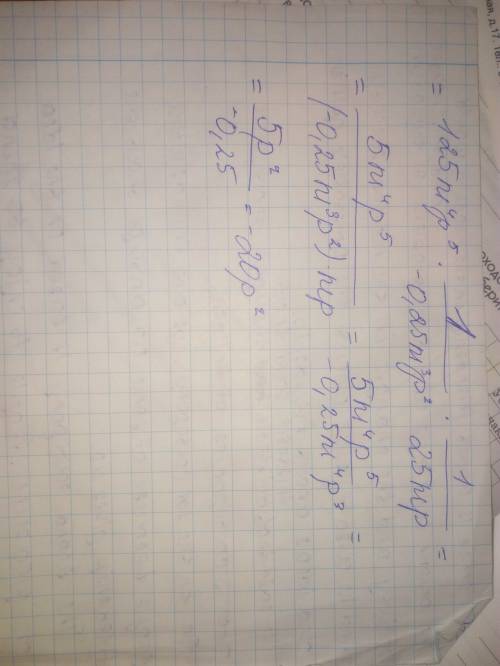 = 125m⁴p⁵ · 1/(-0,25m³p²) · 1/(25mp) =
= 5m⁴p⁵/((-0,25m³p²)·mp) = 5m⁴p⁵/(-0,25m⁴p³) =
= 5p²/(-0,25) = -20p²